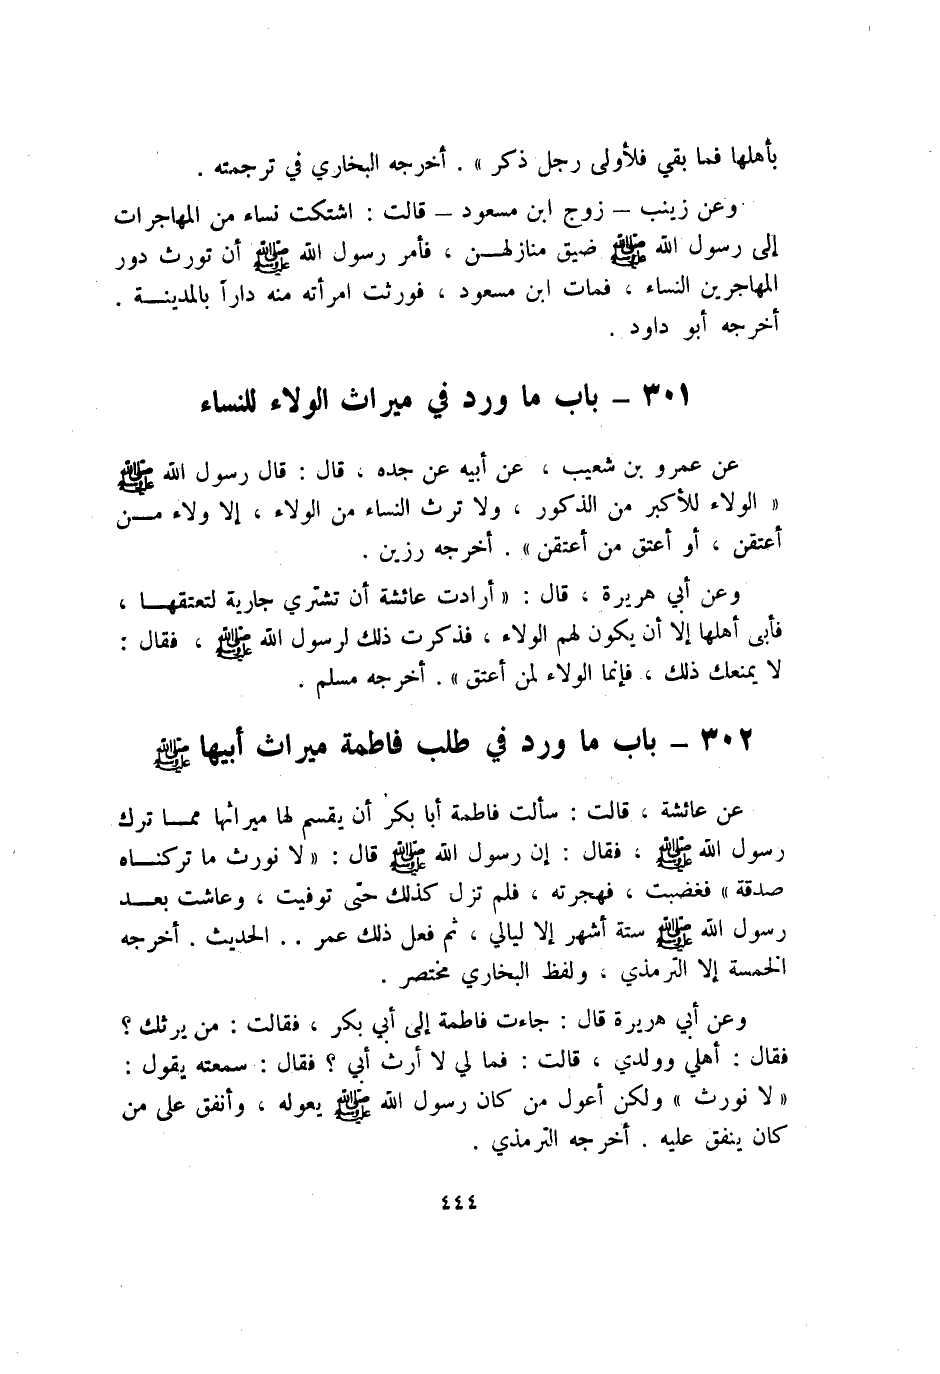 بأهلها فما بقي فلأولى رجل ذكر » . أخرجه البخاري في ترجمته .
وعن زينب – زوج ابن مسعود – قالت : اشتكت نساء من المهاجرات
إلى رسول الله ﷺ ضيق منازلهـــن ، فأمر رسول الله ﷺ أن تورث دور
المهاجرين النساء ، فمات ابن مسعود ، فورثت امرأته منه داراً بالمدينـــة .
أخرجه أبو داود .
٣٠١ – باب ما ورد في ميراث الولاء للنساء
عن عمرو بن شعيب ، عن أبيه عن جده ، قال : قال رسول الله ﷺ
« الولاء للأكبر من الذكور ، ولا ترث النساء من الولاء ، إلا ولاء مـــن
أعتقن ، أو أعتق من أعتقن » . أخرجه رزين .
وعن أبي هريرة ، قال : « أرادت عائشة أن تشتري جارية لتعتقهـــا ،
فأبى أهلها إلا أن يكون لهم الولاء ، فذكرت ذلك لرسول الله ﷺ ، فقال :
لا يمنعك ذلك ، فإنما الولاء لمن أعتق » . أخرجه مسلم .
٣٠٢ – باب ما ورد في طلب فاطمة ميراث أبيها ﷺ
عن عائشة ، قالت : سألت فاطمة أبا بكر أن يقسم لها ميراثها ممـــا ترك
رسول الله ﷺ ، فقال : إن رسول الله ﷺ قال : « لا نورث ما تركنـــاه
صدقة » فغضبت ، فهجرته ، فلم تزل كذلك حتى توفيت ، وعاشت بعـــد
رسول الله ﷺ ستة أشهر إلا ليالي ، ثم فعل ذلك عمر .. الحديث . أخرجه
الخمسة إلا الترمذي ، ولفظ البخاري مختصر .
وعن أبي هريرة قال : جاءت فاطمة إلى أبي بكر ، فقالت : من يرثك ؟
فقال : أهلي وولدي ، قالت : فما لي لا أرث أبي ؟ فقال : سمعته يقول :
« لا نورث » ولكن أعول من كان رسول الله ﷺ يعوله ، وأنفق على من
كان ينفق عليه . أخرجه الترمذي .
٤٤٤